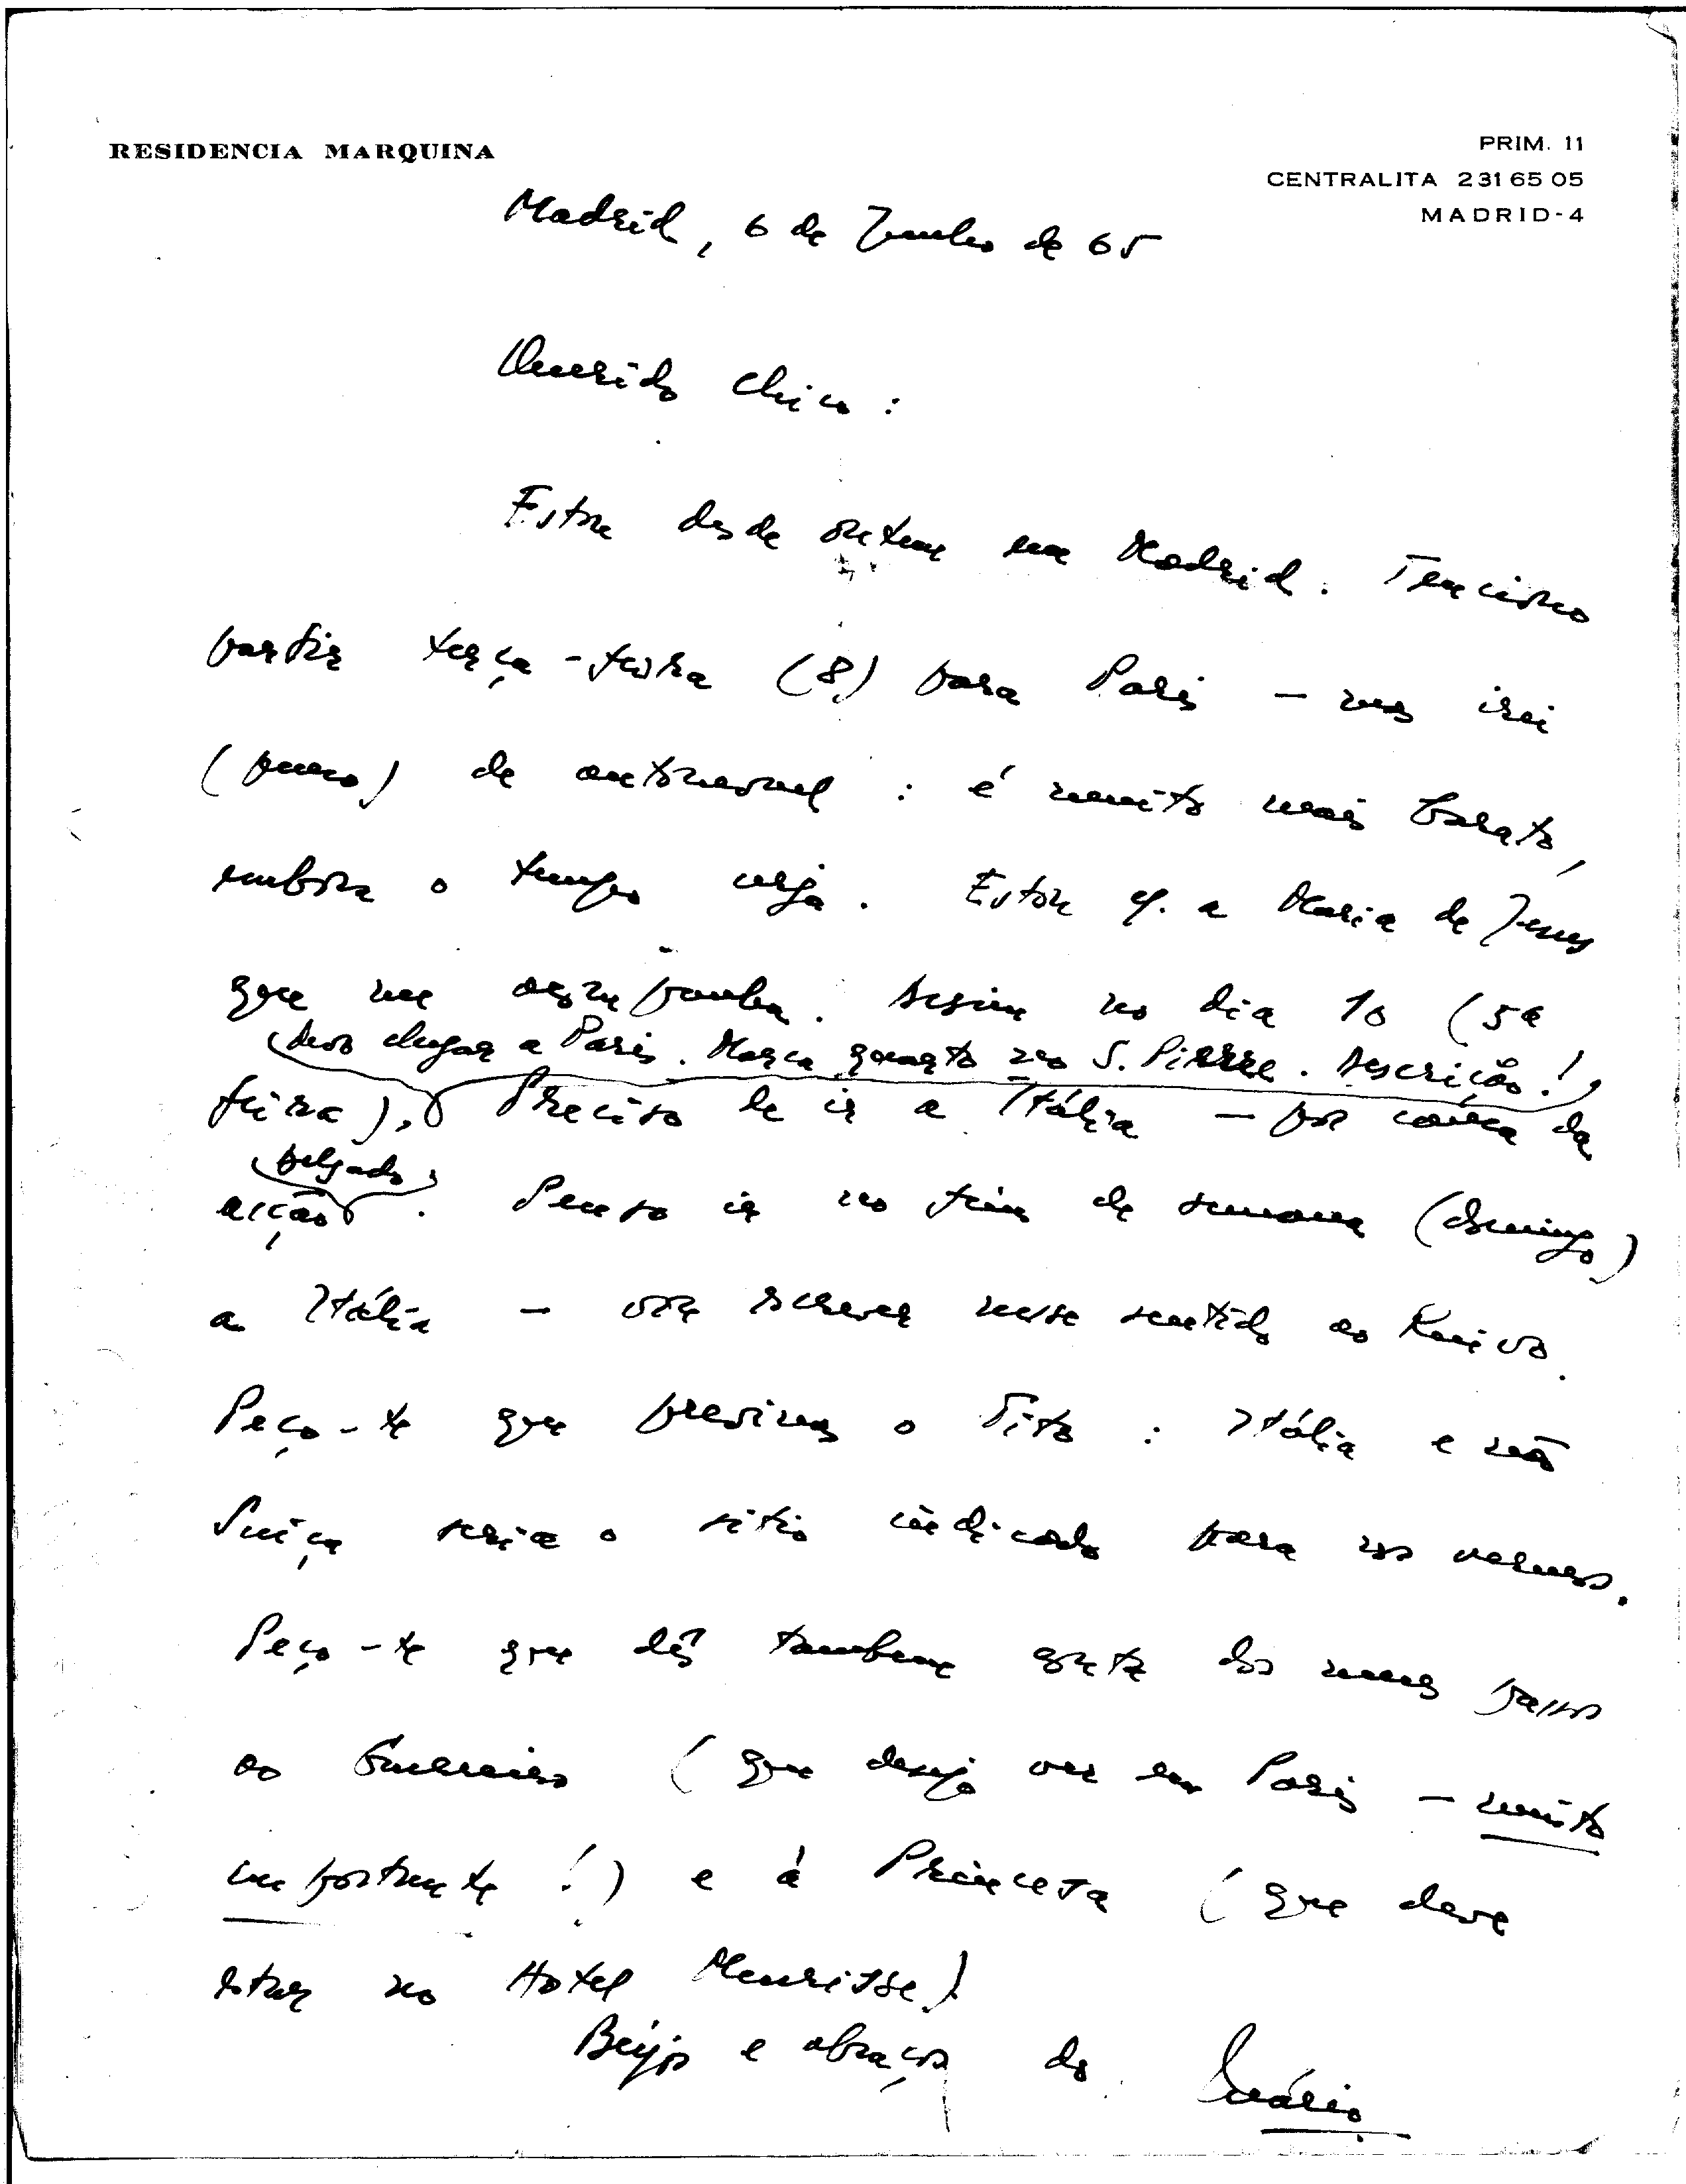 RESIDENCIA MARQUINA
PRIM. 11
CENTRALITA 231 65 05
MADRID-4
Madrid, 6 de Junho de 65
Querido Chico:
Estou desde ontem em Madrid. Tenciono
partir terça-feira (8) para Paris – mas irei
(penso) de automovel : é muito mais barato,
embora o tempo urja. Estou c/. a Maria de Jesus
que me acompanha. Assim no dia 10 (5ª
devo chegar a Paris. Marca quarto no S. Pierre. Descrição!
feira), Preciso de ir a Itália – por causa da
Delgado
acção . Penso ir no fim de semana (domingo)
a Itália – vou escrever nesse sentido ao
Peço-te que previnas o Tito : Itália e não
Suiça seria o sitio indicado para nos vermos.
Peço-te que dês tambem conta dos meus passos
ao Guerreiro (que desejo ver em Paris – muito
importante!) e à Princesa (que deve
estar no Hotel Meurisse)
Beijos e abraços do Mário